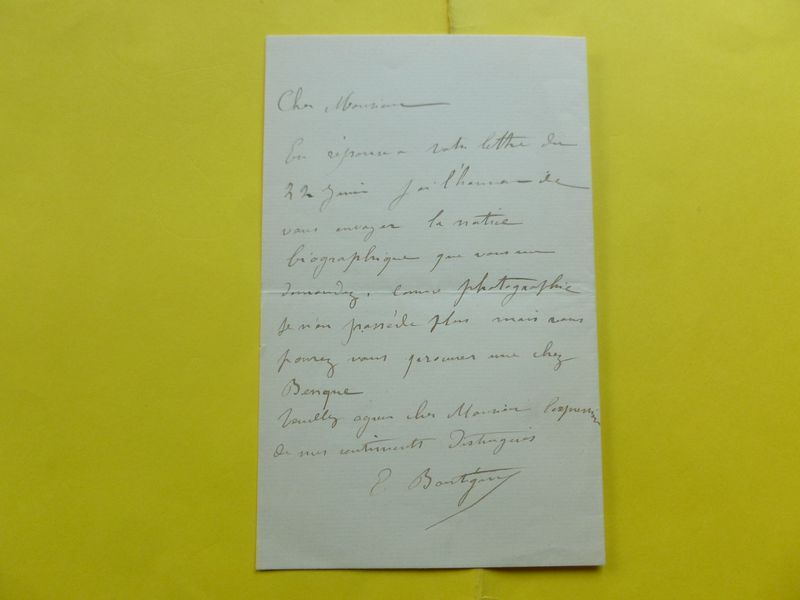 Cher Monsieur
En réponse a votre lettre du
22 Juin j'ai l'honneur de
vous envoyer la notice
biographique que vous me
demandez, comme photographie
Je n'en possède plus mais vous
pouvez vous procurer une chez
Benque
Veuillez agréer cher Monsieur l'expression
de mes sentiments Distingués
E.